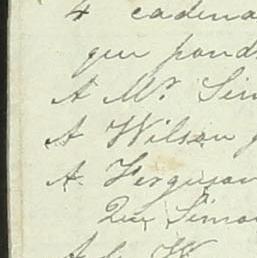 4 cadena
que pond
A Mr. Sim
A Wilson
A Ferguson
Que Simo
A